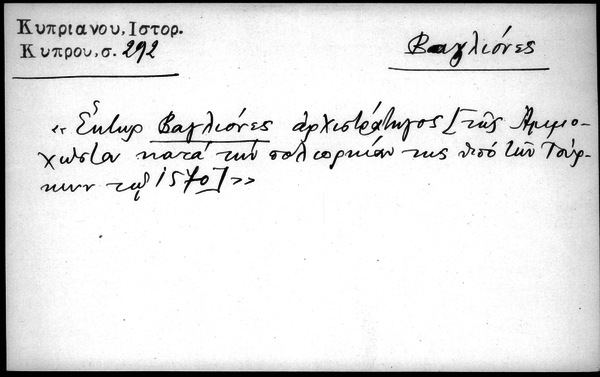 Κυπριανου, Ιστορ.
Κυπρου, σ. 292
Βαγλιόνες
«Ἕκτωρ Βαγλιόνες ἀρχιστράτηγος [τῆς Ἀμμο-
χώστου κατὰ τὴν πολιορκίαν της ὑπό τῶν Τούρ-
κων τῷ 1570]»